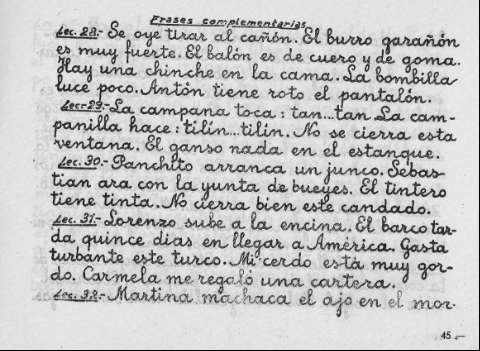 Frases complementarias
Lec. 28.- Se oye tirar al cañón. El burro garañón
es muy fuerte. El balón es de cuero y de goma.
Hay una chinche en la cama. La bombilla
luce poco. Antón tiene roto el pantalón.
Lec-29.- La campana toca: tan...tan La cam-
panilla hace: tilín...tilín. No se cierra esta
ventana. El ganso nada en el estanque.
Lec. 30.- Panchito arranca un junco. Sebas-
tian ara con la yunta de bueyes. El tintero
tiene tinta. No cierra bien este candado.
Lec. 31.- Lorenzo sube a la encina. El barco tar-
da quince dias en llegar a América. Gasta
turbante este turco. Mi cerdo está muy gor-
do. Carmela me regaló una cartera.
Lec. 32.- Martina machaca el ajo en el mor-
45.-